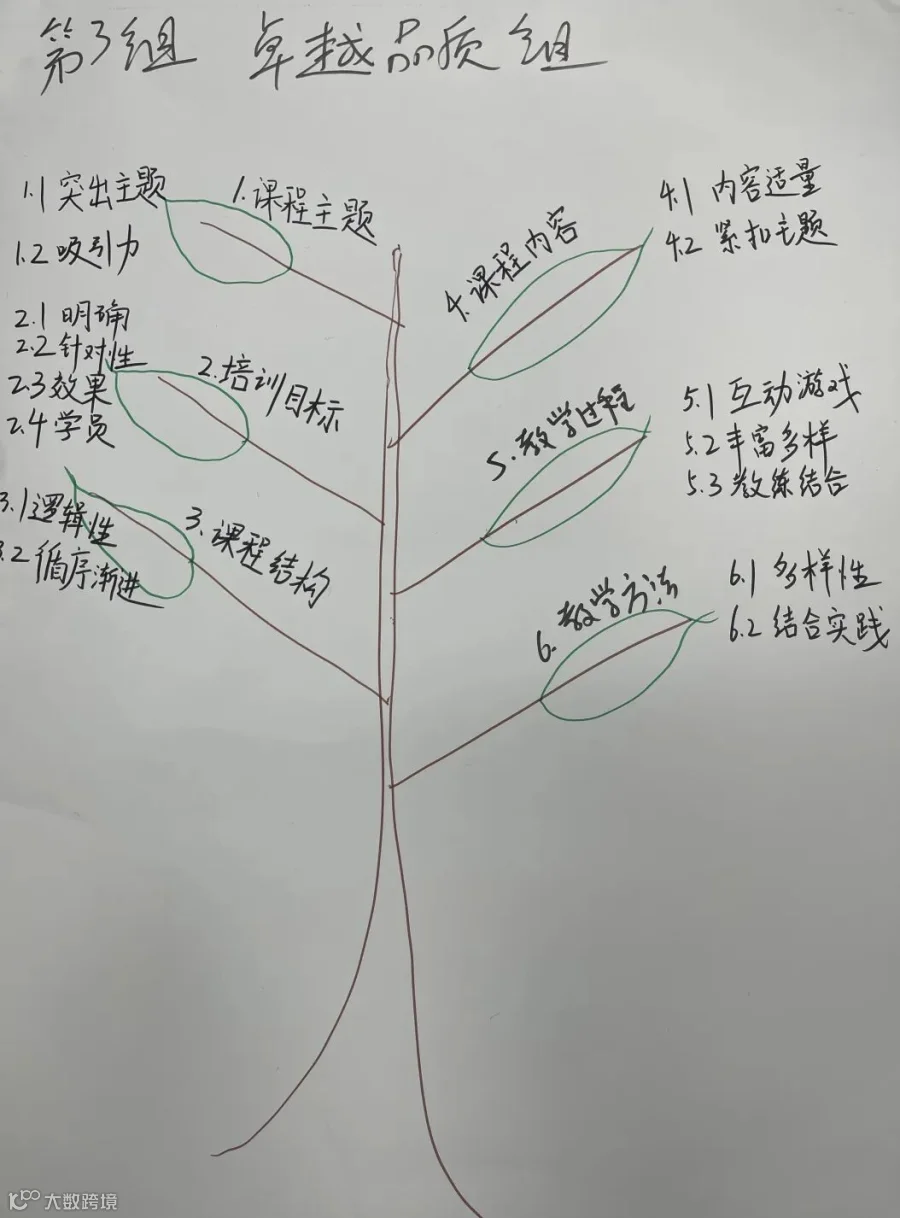 第3组 卓越品质组
1.课程主题
1.1 突出主题
1.2 吸引力
2.培训目标
2.1 明确
2.2 针对性
2.3 效果
2.4 学员
3.课程结构
3.1 逻辑性
3.2 循序渐进
4.课程内容
4.1 内容适量
4.2 紧扣主题
5.教学过程
5.1 互动游戏
5.2 丰富多样
5.3 教练结合
6.教学方法
6.1 多样性
6.2 结合实践
大数跨境